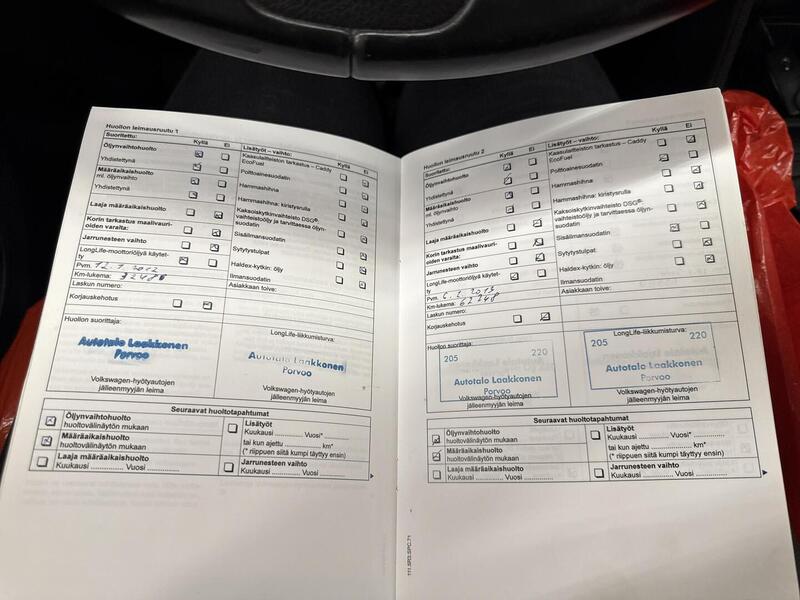 Huollon leimausruutu 1
Suoritettu:
Kyllä
Ei
Öljynvaihtohuolto
Yhdistettynä
Määräaikaishuolto
ml. öljynvaihto
Yhdistettynä
Laaja määräaikaishuolto
Korin tarkastus maalivauri-
oiden varalta:
Jarrunesteen vaihto
LongLife-moottoriöljyä käytet-
ty
Pvm. 12.1.2012
Km-lukema:
Laskun numero:
Korjauskehotus
Lisätyöt – vaihto:
Kyllä
Ei
Kaasulaitteiston tarkastus – Caddy
EcoFuel
Polttoainesuodatin
Hammashihna
Hammashihna: kiristysrulla
Kaksoiskytkinvaihteisto DSG®-
vaihteistoöljy ja tarvittaessa öljyn-
suodatin
Sisäilmansuodatin
Sytytystulpat
Haldex-kytkin: öljy
Ilmansuodatin
Asiakkaan toive:
Huollon suorittaja:
Autotalo Laakkonen
Porvoo
Autotalo Laakkonen
Porvoo
Volkswagen-hyötyautojen
jälleenmyyjän leima
Seuraavat huoltotapahtumat
Öljynvaihtohuolto
huoltovälinäytön mukaan
Määräaikaishuolto
huoltovälinäytön mukaan
Laaja määräaikaishuolto
Kuukausi ............... Vuosi ...............
Lisätyöt
Kuukausi ............... Vuosi* ...............
tai kun ajettu ............... km*
(* riippuen siitä kumpi täyttyy ensin)
Jarrunesteen vaihto
Kuukausi ............... Vuosi ...............
Huollon leimausruutu 2
Suoritettu:
Kyllä
Ei
Öljynvaihtohuolto
Yhdistettynä
Määräaikaishuolto
ml. öljynvaihto
Yhdistettynä
Laaja määräaikaishuolto
Korin tarkastus maalivauri-
oiden varalta:
Jarrunesteen vaihto
LongLife-moottoriöljyä käytet-
ty
Pvm. 6.2.2013
Km-lukema: 62248
Laskun numero:
Korjauskehotus
Lisätyöt – vaihto:
Kyllä
Ei
Kaasulaitteiston tarkastus – Caddy
EcoFuel
Polttoainesuodatin
Hammashihna
Hammashihna: kiristysrulla
Kaksoiskytkinvaihteisto DSG®-
vaihteistoöljy ja tarvittaessa öljyn-
suodatin
Sisäilmansuodatin
Sytytystulpat:
Haldex-kytkin: öljy
Ilmansuodatin
Asiakkaan toive:
Huollon suorittaja:
LongLife-liikkumisturva:
205
220
Autotalo Laakkonen
Porvoo
205
220
Autotalo Laakkonen
Porvoo
Volkswagen-hyötyautojen
jälleenmyyjän leima
Seuraavat huoltotapahtumat
Öljynvaihtohuolto
huoltovälinäytön mukaan
Määräaikaishuolto
huoltovälinäytön mukaan
Laaja määräaikaishuolto
Kuukausi ............... Vuosi ...............
Lisätyöt
Kuukausi ............... Vuosi* ...............
tai kun ajettu ............... km*
(* riippuen siitä kumpi täyttyy ensin)
Jarrunesteen vaihto
Kuukausi ............... Vuosi ...............
111.5R3.SPC.71